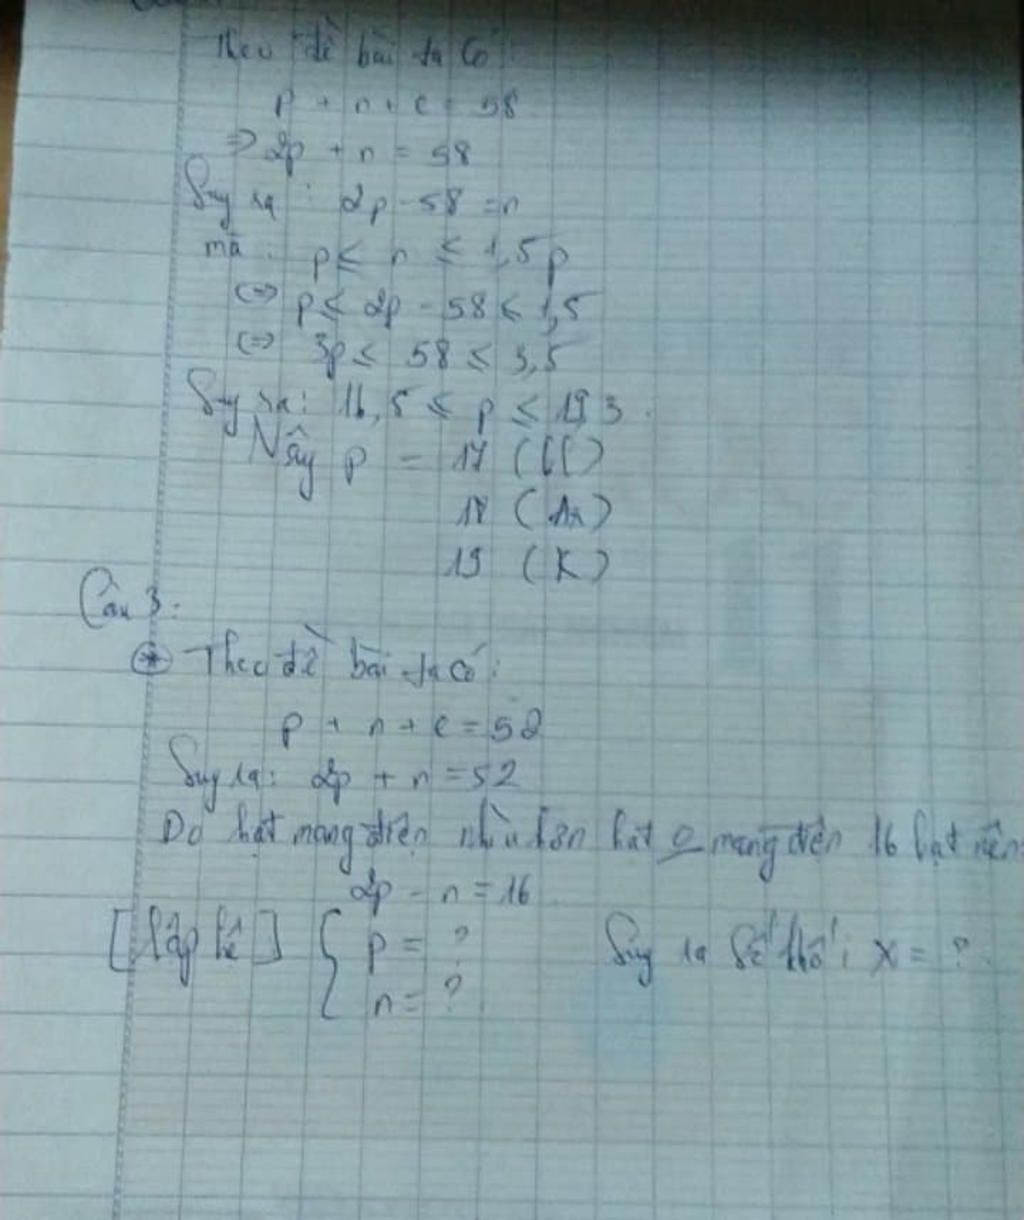 Theo đề bài ta có:
p + n + e = 58
=> 2p + n = 58
Suy ra: 2p - 58 = n
mà: p ≤ n ≤ 1,5p
<=> p ≤ 2p - 58 ≤ 1,5
<=> 3p ≤ 58 ≤ 3,5
Suy ra: 16,5 ≤ p ≤ 19,3.
Vậy p = 17 (Cl)
18 (Ar)
19 (K)
Câu 3:
* Theo đề bài ta có:
p + n + e = 52
Suy ra: 2p + n = 52
Do hạt mang điện nhiều hơn hạt o mang điện 16 hạt nên:
2p - n = 16
[lập hệ] { p = ? Suy ra số khối: X = ?
n = ?